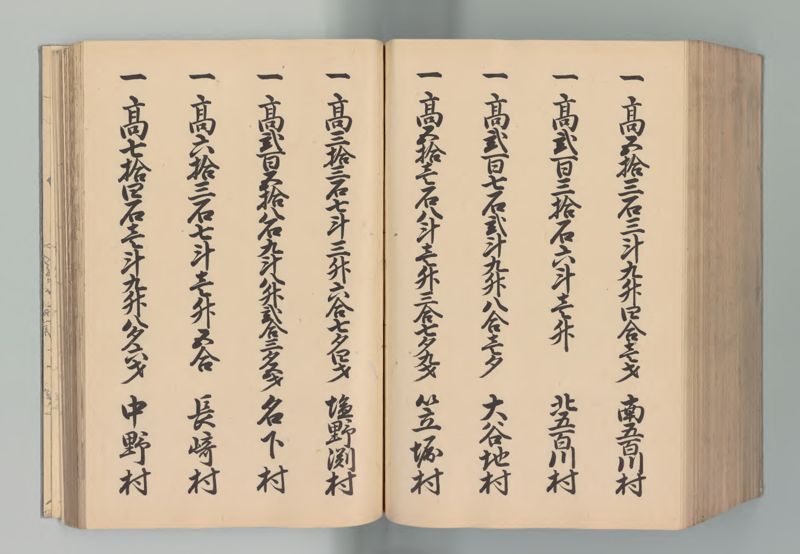 一 高五拾三石三斗九升四合壱才 南五百川村
一 高弐百三拾石六斗壱升 北五百川村
一 高弐百七石弐斗九升八合壱夕 大谷地村
一 高五拾壱石八斗壱升三合七夕九才 笠堀村
一 高三拾三石七斗三升六合七夕四才 塩野渕村
一 高弐百五拾八石九斗八升弐合三夕五才 名下村
一 高六拾三石七斗壱升五合 長崎村
一 高七拾四石壱斗九升八夕六才 中野村